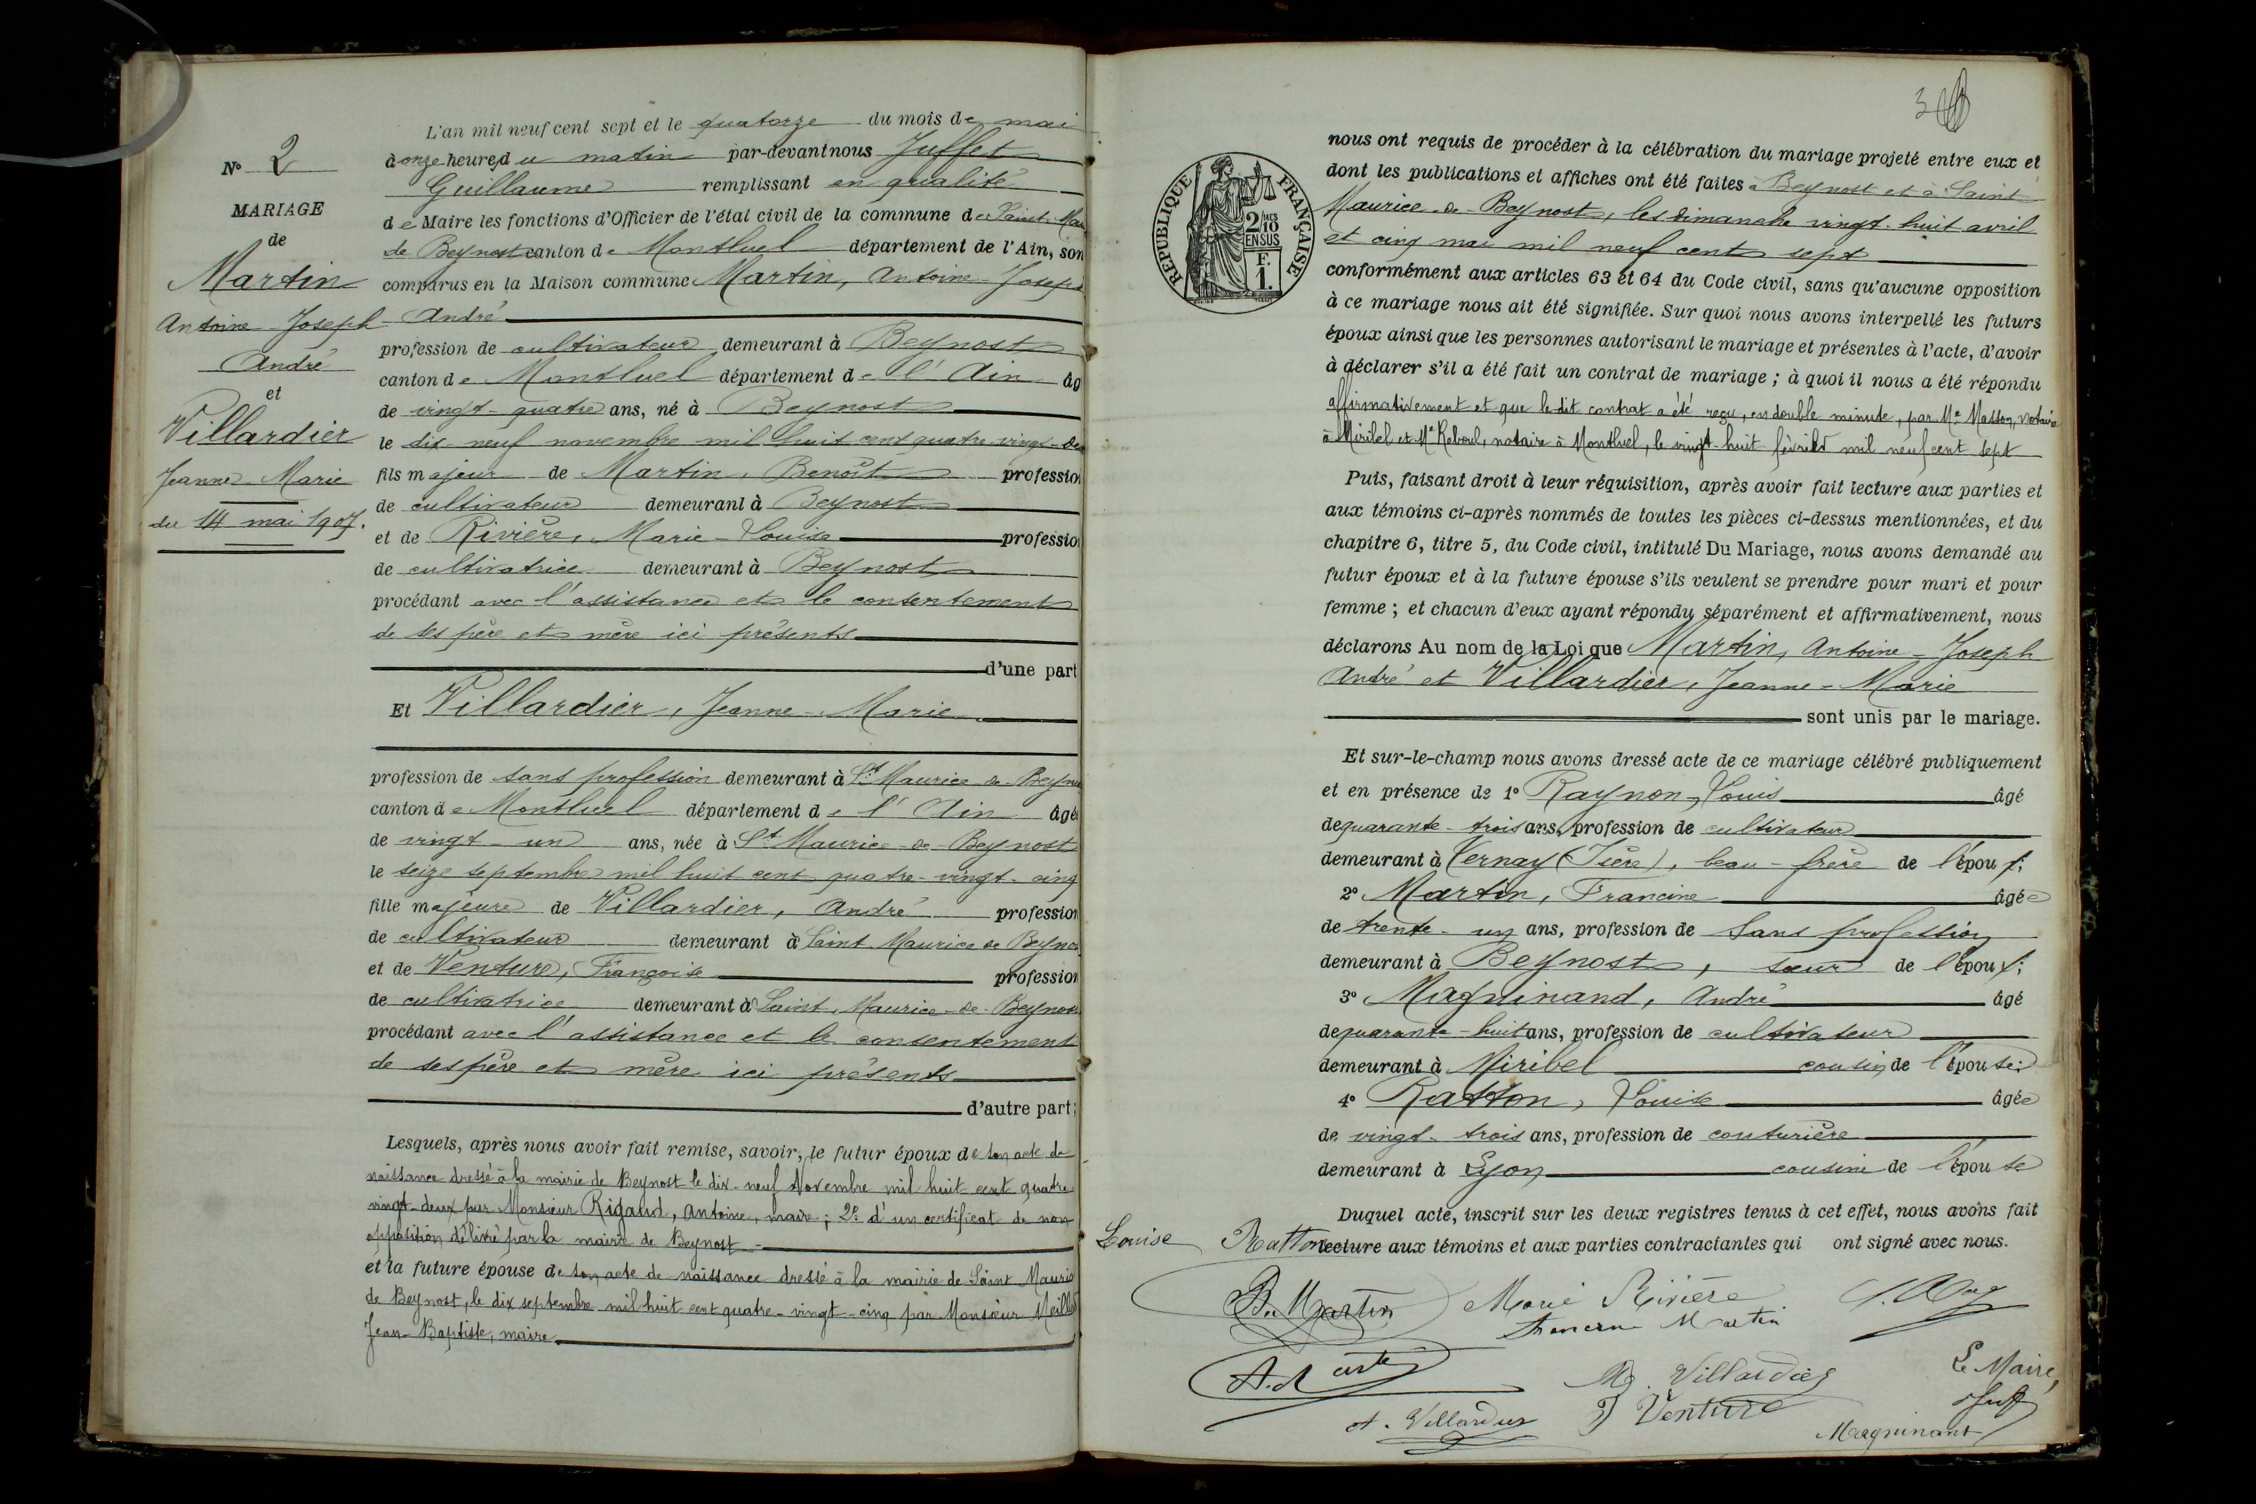 N° 2
MARIAGE
de
Martin
Antoine Joseph
André
et
Villardier
Jeanne Marie
du 14 mai 1907.
L'an mil neuf cent sept et le quatorze du mois de mai
à onze heures du matin par-devant nous Juffet
Guillaume remplissant en qualité
de Maire les fonctions d'Officier de l'état civil de la commune de Saint-Mau
de Beynost canton de Montluel département de l'Ain, son
comparus en la Maison commune Martin, Antoine Joseph
André
profession de cultivateur demeurant à Beynost
canton de Montluel département de l'Ain âg
de vingt-quatre ans, né à Beynost
le dix-neuf novembre mil huit cent quatre-vingt-de
fils majeur de Martin, Benoît profession
de cultivateur demeurant à Beynost
et de Rivière, Marie-Louise profession
de cultivatrice demeurant à Beynost
procédant avec l'assistance et le consentement
de ses père et mère ici présents
d'une part
Et Villardier, Jeanne-Marie
profession de sans profession demeurant à St Maurice de Beyno
canton de Montluel département de l'Ain âgé
de vingt-un ans, née à St Maurice-de-Beynost
le seize septembre mil huit cent quatre-vingt-cinq
fille majeure de Villardier, André profession
de cultivateur demeurant à Saint Maurice de Beyno
et de Venture, Françoise profession
de cultivatrice demeurant à Saint-Maurice-de-Beynos
procédant avec l'assistance et le consentement
de ses père et mère ici présents
d'autre part;
Lesquels, après nous avoir fait remise, savoir, le futur époux de son acte de
naissance dressé à la mairie de Beynost le dix-neuf Novembre mil huit cent quatre
vingt-deux par Monsieur Rigaud, Antoine, maire; 2° d'un certificat de non
opposition délivré par la mairie de Beynost
et la future épouse de son acte de naissance dressé à la mairie de Saint Mauric
de Beynost, le dix septembre mil huit cent quatre-vingt-cinq par Monsieur Meill
Jean-Baptiste, maire
3
RÉPUBLIQUE FRANÇAISE
2/10 EN SUS
F. 1.
nous ont requis de procéder à la célébration du mariage projeté entre eux et
dont les publications et affiches ont été faites à Beynost et à Saint
Maurice-de-Beynost, les dimanche vingt-huit avril
et cinq mai mil neuf cent sept
conformément aux articles 63 et 64 du Code civil, sans qu'aucune opposition
à ce mariage nous ait été signifiée. Sur quoi nous avons interpellé les futurs
époux ainsi que les personnes autorisant le mariage et présentes à l'acte, d'avoir
à déclarer s'il a été fait un contrat de mariage; à quoi il nous a été répondu
affirmativement et que le dit contrat a été reçu, en double minute, par Me Masson, notaire
à Miribel et Me Reboul, notaire à Montluel, le vingt-huit février mil neuf cent sept
Puis, faisant droit à leur réquisition, après avoir fait lecture aux parties et
aux témoins ci-après nommés de toutes les pièces ci-dessus mentionnées, et du
chapitre 6, titre 5, du Code civil, intitulé Du Mariage, nous avons demandé au
futur époux et à la future épouse s'ils veulent se prendre pour mari et pour
femme; et chacun d'eux ayant répondu séparément et affirmativement, nous
déclarons Au nom de la Loi que Martin, Antoine-Joseph
André et Villardier, Jeanne-Marie
sont unis par le mariage.
Et sur-le-champ nous avons dressé acte de ce mariage célébré publiquement
et en présence de 1° Raynon, Louis âgé
de quarante-trois ans, profession de cultivateur
demeurant à Vernay (Isère), beau-frère de l'époux;
2° Martin, Francine âgée
de trente-un ans, profession de sans profession
demeurant à Beynost, sœur de l'époux;
3° Magninand, André âgé
de quarante-huit ans, profession de cultivateur
demeurant à Miribel cousin de l'épouse;
4° Ratton, Louise âgée
de vingt-trois ans, profession de couturière
demeurant à Lyon cousine de l'épouse
Duquel acte, inscrit sur les deux registres tenus à cet effet, nous avons fait
Louise Ratton lecture aux témoins et aux parties contractantes qui ont signé avec nous.
B. Martin Marie Rivière
Francine Martin
M. Villardier Le Maire,
A. Villardier F Venture Juffet
Magninant